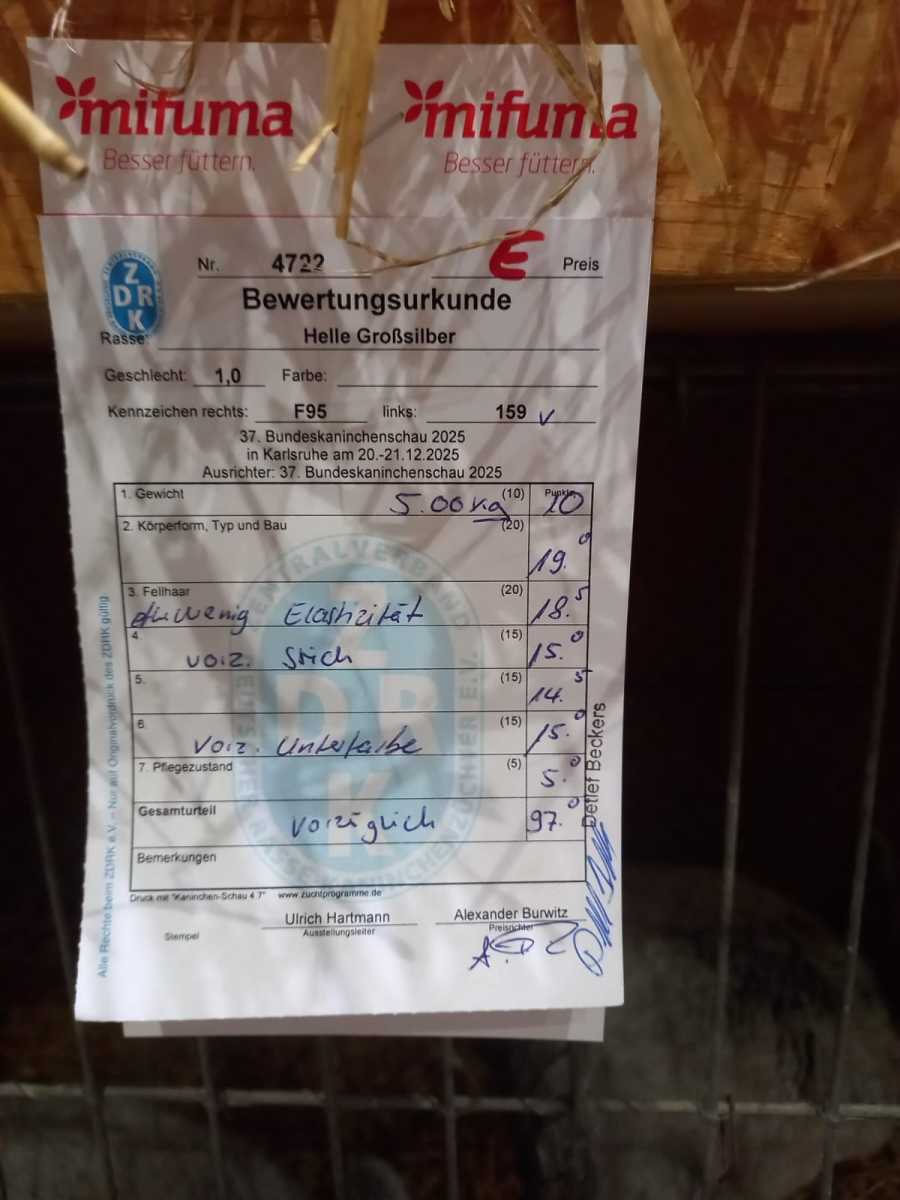 mifuma mifuma
Besser füttern. Besser füttern.
Nr. 4722 E Preis
ZDRK
Bewertungsurkunde
Rasse: Helle Großsilber
Geschlecht: 1,0 Farbe:
Kennzeichen rechts: F95 links: 159
37. Bundeskaninchenschau 2025
in Karlsruhe am 20.-21.12.2025
Ausrichter: 37. Bundeskaninchenschau 2025
1. Gewicht 5.00 kg (10) Punkte 10
2. Körperform, Typ und Bau (20) 19.0
3. Fellhaar (20)
wenig Elastizität 18.5
4. (15)
vorz. Stich 15.0
5. (15) 14.5
6. (15)
vorz. Unterfarbe 15.0
7. Pflegezustand (5) 5.0
Gesamturteil vorzüglich 97.0
Bemerkungen
Druck mit "Kaninchen-Schau 4.7" www.zuchtprogramme.de
Ulrich Hartmann Alexander Burwitz
Stempel Ausstellungsleiter Preisrichter
Detlef Beckers
Alle Rechte beim ZDRK e.V. – Nur auf Originalvordruck des ZDRK gültig